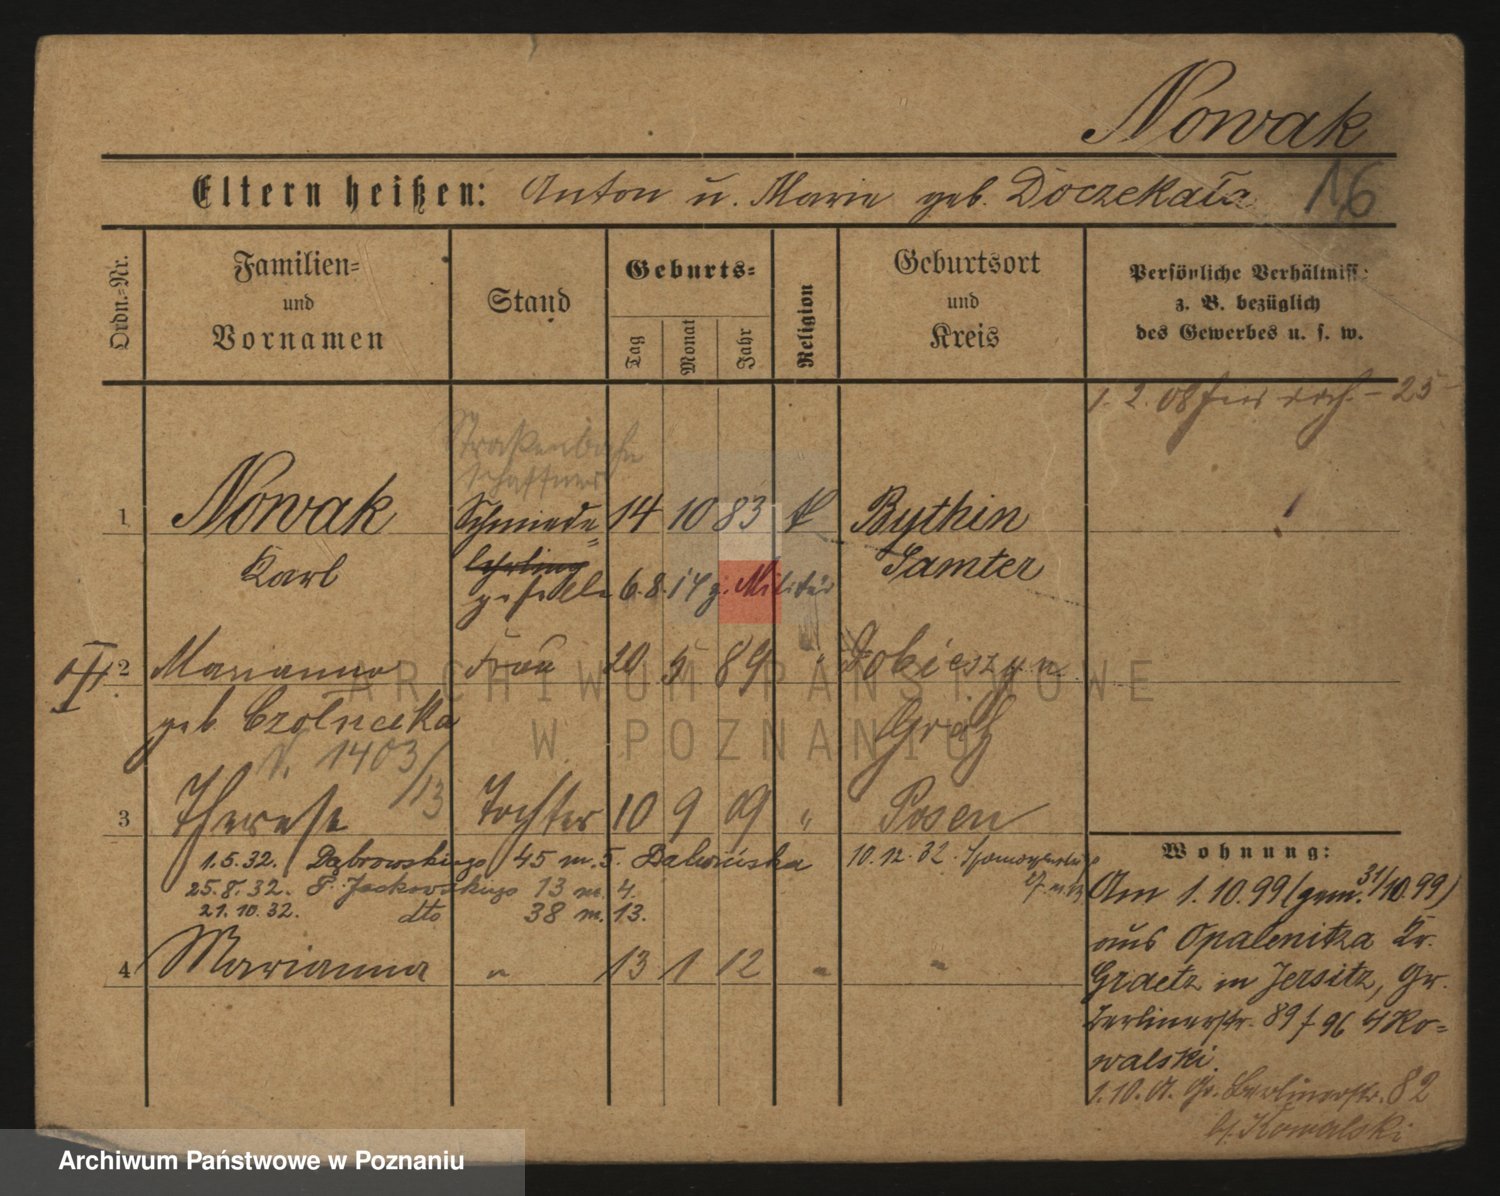 Nowak
Eltern heißen: Anton u. Marie geb. Doczekała 16
Ordn.-Nr.
Familien-
und
Vornamen
Stand
Geburts-
Tag
Monat
Jahr
Religion
Geburtsort
und
Kreis
Persönliche Verhältniss:
z. B. bezüglich
des Gewerbes u. s. w.
1. 2. 08 - 25
Straßenbahn
schaffner
1 Nowak Schmiede- 14 10 83 k Bythin
Karl lehrling Samter
geselle 6.8.14 z. Militär
2 Marianna Frau 20 5 89 " Dobieszyn
geb. Grätz
N. 1403/13
3 Therese Tochter 10 9 09 " Posen
1.5.32. Dąbrowskiego 45 m. 5. 10.12.32.
25.8.32. P. Jackowskiego 13 m. 4.
21.10.32. dto 38 m. 13.
4 Marianna " 13 1 12 " "
Wohnung:
Am 1.10.99 (gem. 31/10.99)
aus Opalenitza Kr.
Graetz in Jersitz, Gr.
Berlinerstr. 89 f 96 Ko-
walski.
1.10.01. Gr. Berlinerstr. 82
b/ Kowalski
ARCHIWUM PAŃSTWOWE
W POZNANIU
Archiwum Państwowe w Poznaniu